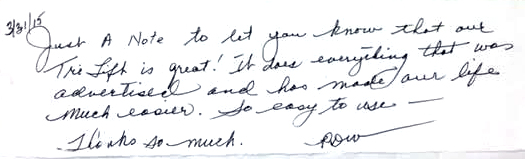 3/31/15
Just A Note to let you know that our
Tri Lift is great! It does everything that was
advertised and has made our life
much easier. So easy to use —
Thinks so much.